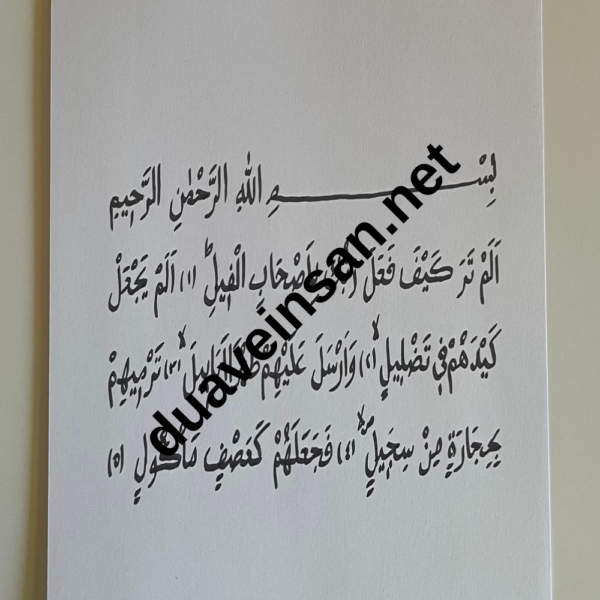 بِسْمِ اللهِ الرَّحْمٰنِ الرَّحِيمِ
اَلَمْ تَرَ كَيْفَ فَعَلَ بِاَصْحَابِ الْفِيلِ (١) اَلَمْ يَجْعَلْ
كَيْدَهُمْ فِي تَضْلِيلٍ (٢) وَاَرْسَلَ عَلَيْهِمْ اَبَابِيلَ (٣) تَرْمِيهِمْ
بِحِجَارَةٍ مِنْ سِجِّيلٍ (٤) فَجَعَلَهُمْ كَعَصْفٍ مَأْكُولٍ (٥)
duaveinsan.net